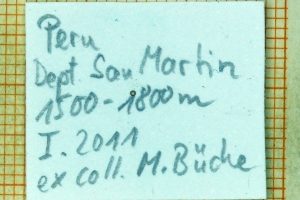 Peru
Dept. San Martin
1500-1800m
I. 2011
ex coll. M. Büche